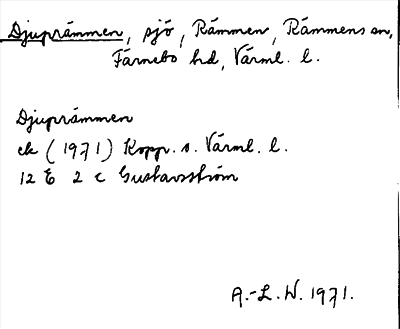 Djuprämmen, sjö, Rämmen, Rämmens sn,
Färnebo hd, Värml. l.
Djuprämmen
ek (1971) Kopp. o. Värml. l.
12 E 2 c Gustavsström
A.-L. W. 1971.